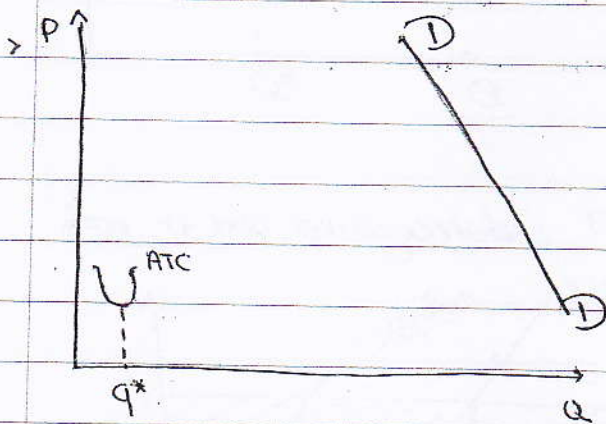 P
D
ATC
D
q*
Q